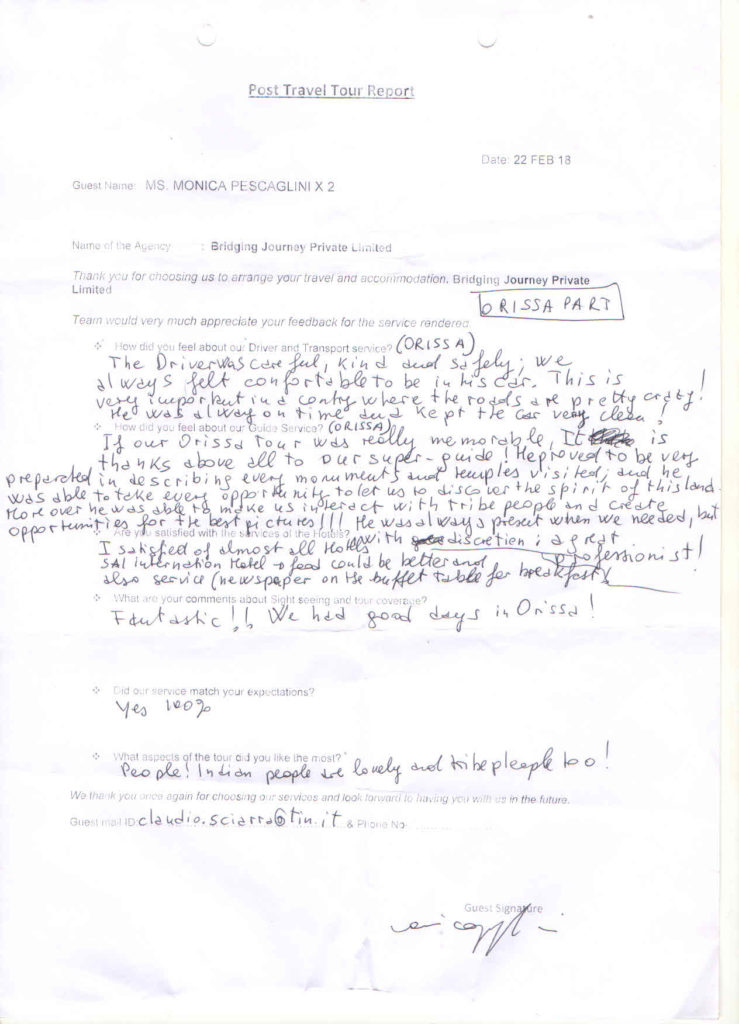 Post Travel Tour Report
Date: 22 FEB 18
Guest Name: MS. MONICA PESCAGLINI X 2
Name of the Agency : Bridging Journey Private Limited
Thank you for choosing us to arrange your travel and accommodation. Bridging Journey Private
Limited
ORISSA PART
Team would very much appreciate your feedback for the service rendered
How did you feel about our Driver and Transport service? (ORISSA)
The Driver was careful, kind and safely; we
always felt confortable to be in his car. This is
very important in a contry where the roads are pretty crazy!
He was alway on time and kept the car very clean!
How did you feel about our Guide Service? (ORISSA)
If our Orissa Tour was really memorable, It is
thanks above all to our super-guide! He proved to be very
preparated in describing every monuments and temples visited; and he
was able to take every opportunity to let us to discover the spirit of this land.
More over he was able to make us interact with tribe people and create
opportunities for the best pictures!!! He was always present when we needed, but
Are you satisfied with the services of the Hotels?
with discretion; a great
professionist!
I satisfied of almost all Hotels
SAI internation Hotel → food could be better and
also service (newspaper on the buffet table for breakfast)
What are your comments about Sight seeing and tour coverage?
Fantastic!! We had good days in Orissa!
Did our service match your expectations?
Yes 100%
What aspects of the tour did you like the most?
People! Indian people are lovely and tribe pleaple too!
We thank you once again for choosing our services and look forward to having you with us in the future.
Guest mail ID: claudio.sciarra@tin.it & Phone No
Guest Signature